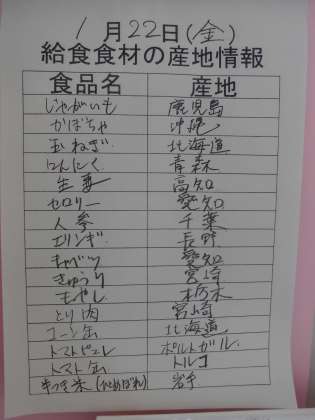 1月22日(金)
給食食材の産地情報
食品名 産地
じゃがいも 鹿児島
かぼちゃ 沖縄
玉ねぎ 北海道
にんにく 青森
生姜 高知
セロリー 愛知
人参 千葉
エリンギ 長野
キャベツ 愛知
きゅうり 宮崎
もやし 栃木
とり肉 宮崎
コーン缶 北海道
トマトピューレ ポルトガル
トマト缶 トルコ
もつき米(ひとめぼれ) 岩手